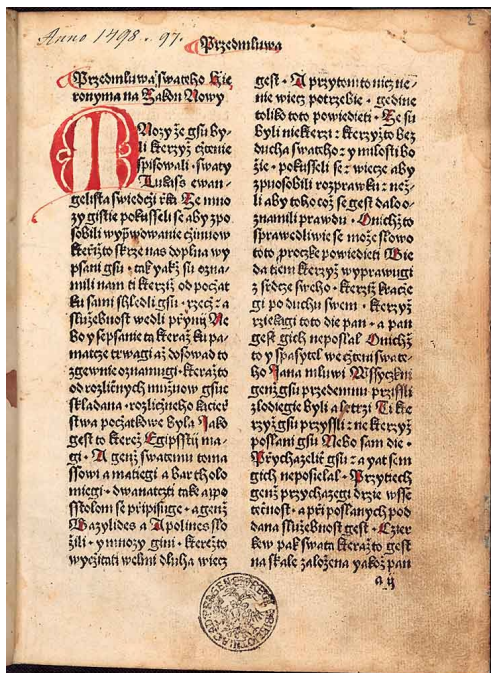 Anno 1498. 97.
2
Przedmluwa
Przedmluwa swateho Hie
ronyma na Zakon Nowy
MNozy že gsu by-
li kterzyž cžtenie
spisowali · swaty
Lukass ewan-
gelista swiedcží řka Ze mno
zy gistie pokusseli se aby zpo
sobili wyprwowanie cžinuow
kteřižto skrze nas doplna wy
psani gsu · tak yakž su ozna-
mili nam ti kteříž od pocžat
ku sami shledli gsu · rzecž : a
služebnost wedli přynij Ne
bo y sepsanie ta kteraž ku pa-
matcze trwagi až dosowad to
zgewnie oznamugi · kteražto
od rozlicžnych mužuow gsuc
skladana · rozlicžneho kacieř
stwa pocžatkowe byla Jako
gest to kterež Egipsstij ma-
gi · A genž swatemu toma
ssowi a matiegi a Bartholo
miegi · dwanatczti take apo
sstolom se připisuge · a genž
Bazylides a Apolines slo
žili · y mnozy gini · kterežto
wycžitati welmi dluha wiecz
gest · A przytom to nicz ne-
nie wiecz potrzebie · gedine
toliko toto powiedieti · Ze su
byli niekerzi : kterzyžto bez
ducha swatho : y milosti bo
žie · pokusseli se : wiecze aby
zpuosobili rozprawku : než-
li aby toho což se gest dalo o-
znamili prawdu · Onichžto
sprawedliwie se može slowo
toto prorocke powiedieti Bie
da tiem kterzyž wyprawugi
z srdcze sweho · kterziž kracze
gi po duchu swem · kterzyž
rziekagi toto die pan · a pan
gest gich neposlal Onichž
to y spasytel we cžteni swate-
ho Jana mluwi Wssyczkni
genž gsu przedemnu przissli
zlodiegie byli a lotrzi Ti kte
rzyž gsu przyssli : ne kterzyž
poslani gsu Nebo sam die ·
Přychazelit gsu : a yat sem
gich neposielal · Przytiech
genž przychazegi drzie wsse
tecžnost · a při poslaných pod
dana služebnost gest · Czier
kew pak swata kteražto gest
na skale založena yakož pan
a ij